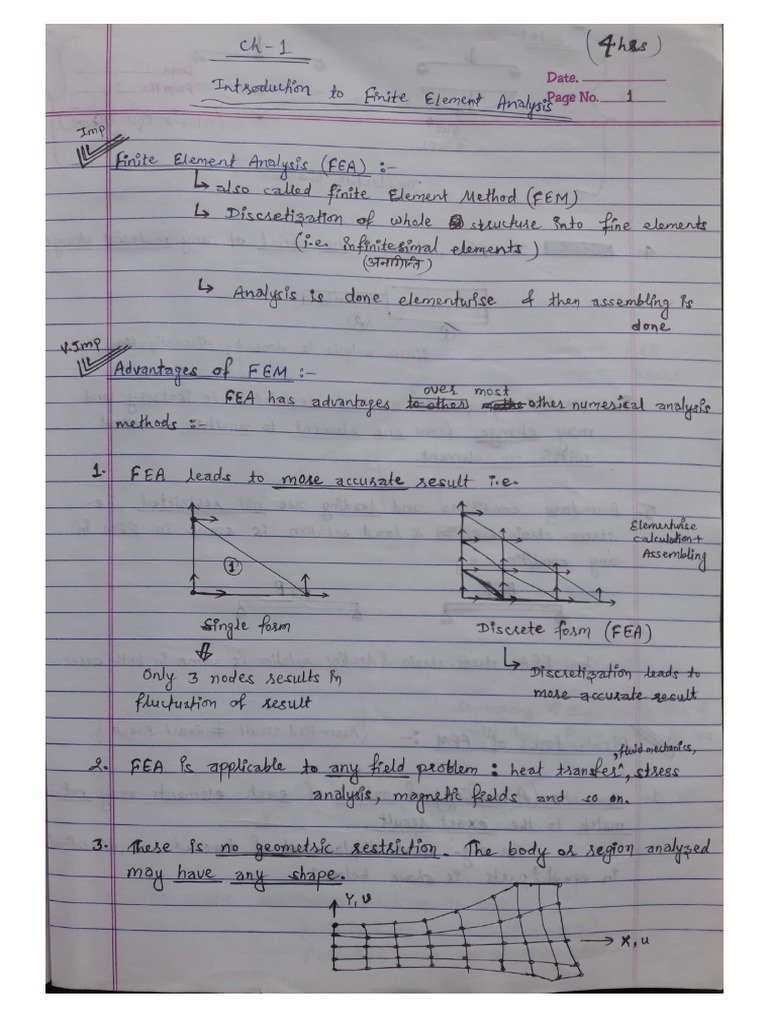 Ch-1
(4hrs)
Date.
Introduction to Finite Element Analysis
Page No. 1
Imp
Finite Element Analysis (FEA) :-
↳ also called finite Element Method (FEM)
↳ Discretization of whole structure into fine elements
(i.e. infinitesimal elements)
↳ Analysis is done elementwise & then assembling is
done
V.Imp
Advantages of FEM :-
over most
FEA has advantages to other other numerical analysis
methods :-
1. FEA leads to more accurate result i.e.
Elementwise
calculation+
Assembling
1
Single form
Discrete form (FEA)
⇓
Only 3 nodes results in
fluctuation of result
↳ Discretization leads to
more accurate result
, fluid mechanics,
2. FEA is applicable to any field problem : heat transfer^, stress
analysis, magnetic fields and so on.
3. There is no geometric restriction. The body or region analyzed
may have any shape.
Y, v
→ X, u